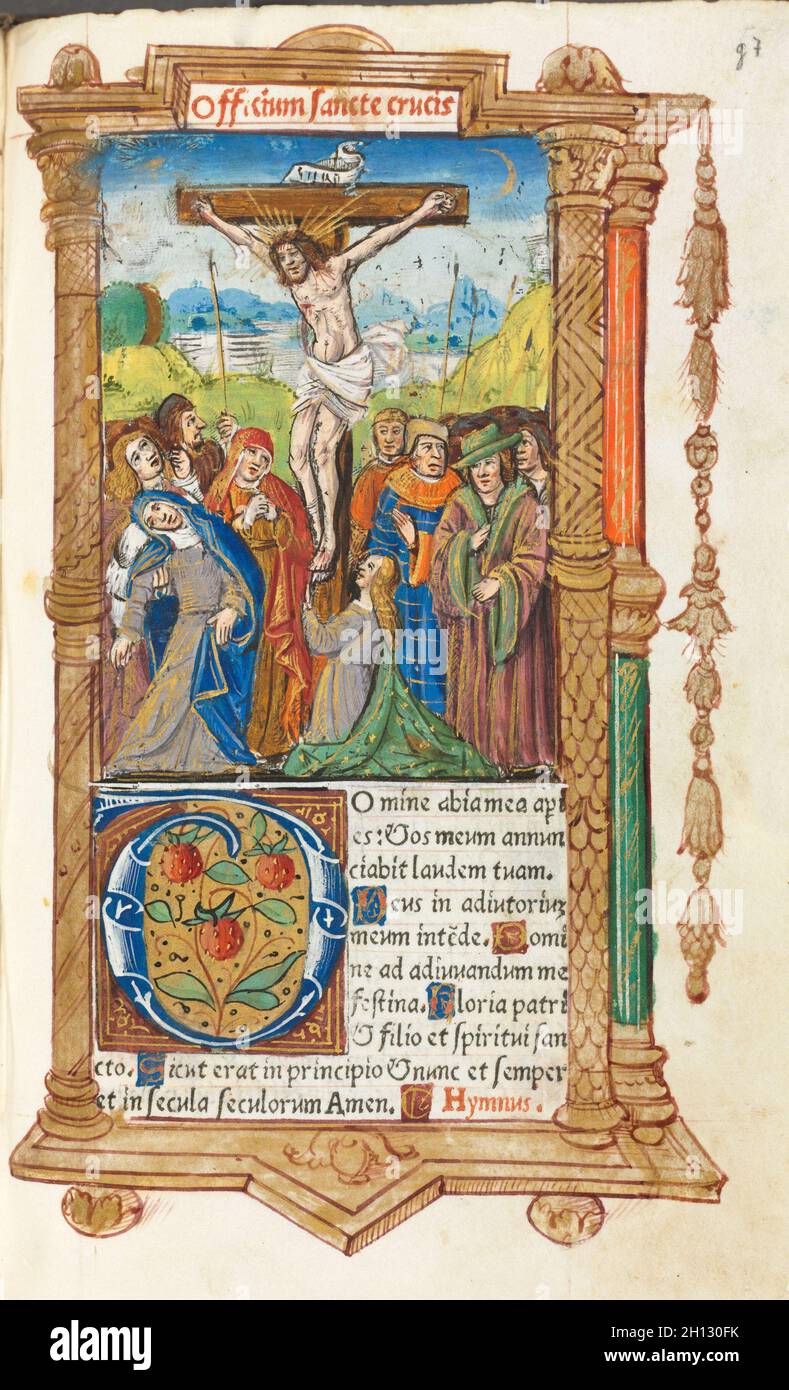 97
Officium sancte crucis
Omine abia mea apri
es: & os meum annun
ciabit laudem tuam.
Deus in adiutoriuz
meum intēde. Domi
ne ad adiuvandum me
festina. Gloria patri
& filio et spiritui san
cto. Sicut erat in principio & nunc et semper
et in secula seculorum Amen. Hymnus.
a
alamy
Image ID: 2H130FK
www.alamy.com